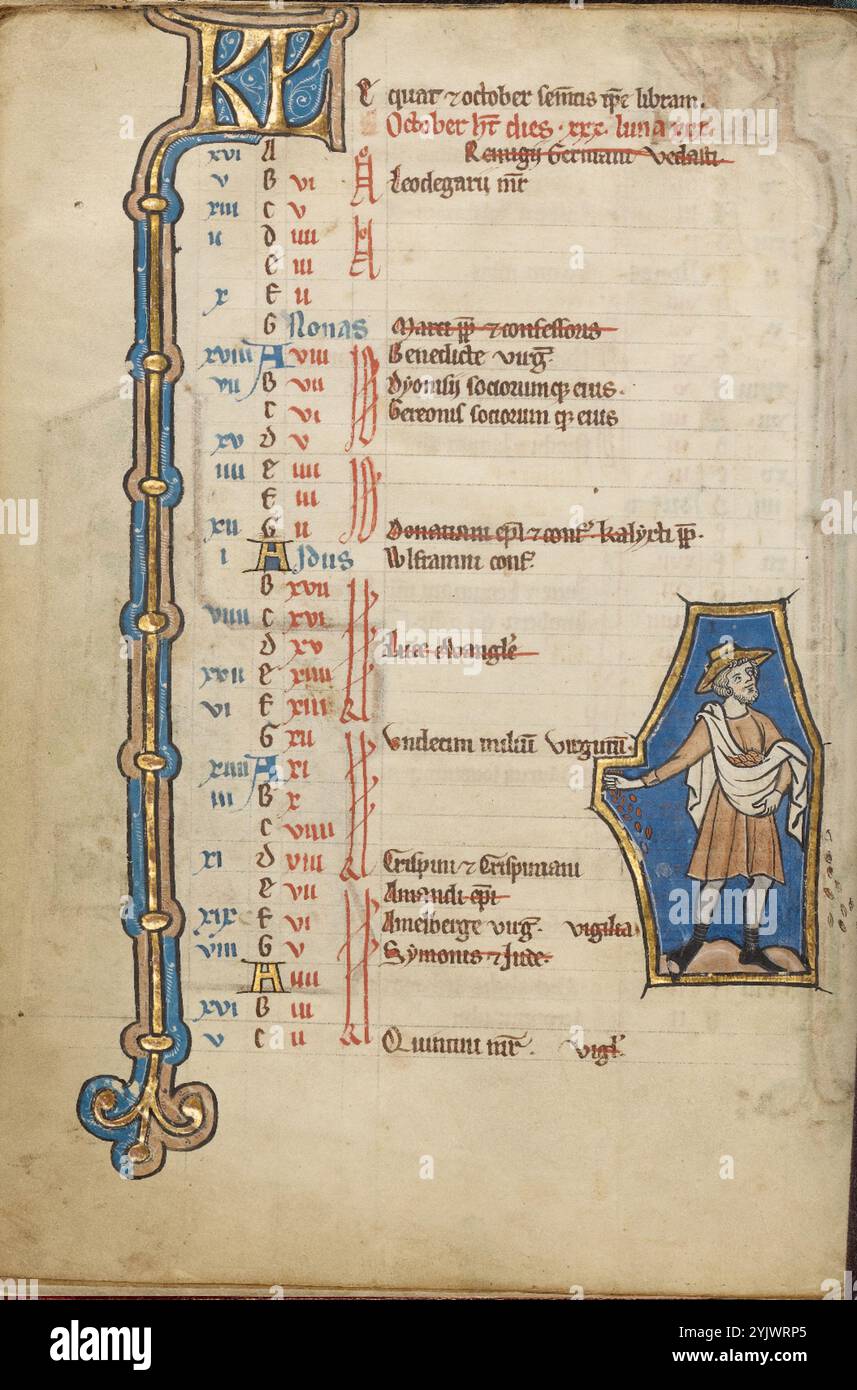 KL
E quat ⁊ october sem̄tis ip̄e libram.
October ht̄ dies · xxx · luna
xvi A Remigii Germani Vedasti.
v B vi Leodegarii mr̄
xiii C v
ii d iiii
e iii
x F ii
G Nonas Marci pp̄ ⁊ confessoris
xviii A viii Benedicte virḡ.
vii B vii Dyonisii sociorumqꝫ eius.
C vi Gereonis sociorum qꝫ eius
xv d v
iiii e iiii
F iii
xii G ii Donatiani ep̄i ⁊ conf̄. Kalyxti pp̄.
i A Idus Wlframni conf̄.
B xvii
viiii C xvi
d xv Luce evangl̄e
xvii e xiiii
vi F xiii
G xii Undecim miliū virginū.
xiiii A xi
iii B x
C viiii
xi d viii Crispini ⁊ Crispiniani
e vii Amandi ep̄i
xix F vi Amelberge virḡ. vigilia.
viii G v Symonis ⁊ Jude.
A iiii
xvi B iii
v C ii Quintini mr̄. vigl̄.
alamy
Image ID: 2YJWRP5
www.alamy.com